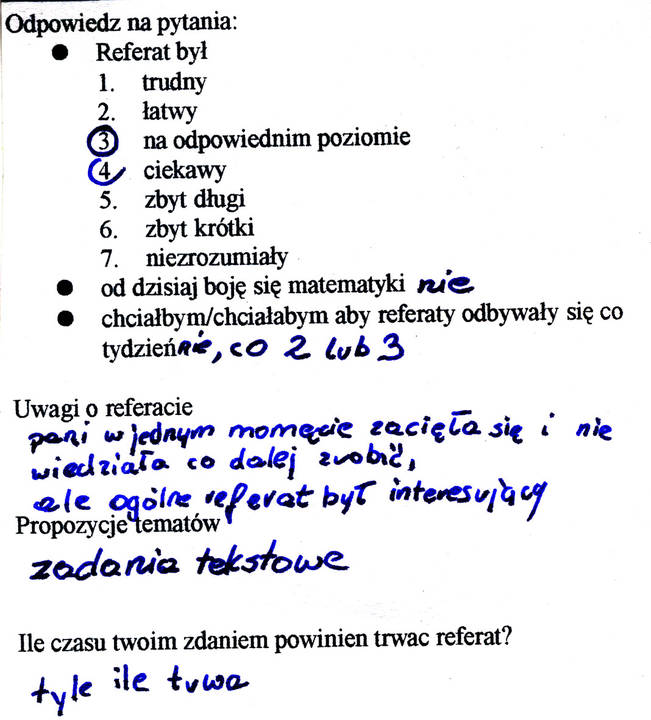 Odpowiedz na pytania:
● Referat był
1. trudny
2. łatwy
3 na odpowiednim poziomie
4 ciekawy
5. zbyt długi
6. zbyt krótki
7. niezrozumiały
● od dzisiaj boję się matematyki nie
● chciałbym/chciałabym aby referaty odbywały się co
tydzień nie, co 2 lub 3
Uwagi o referacie
pani w jednym momęcie zacięła się i nie
wiedziała co dalej zrobić,
ale ogólne referat był interesujący
Propozycje tematów
zadania tekstowe
Ile czasu twoim zdaniem powinien trwac referat?
tyle ile trwa